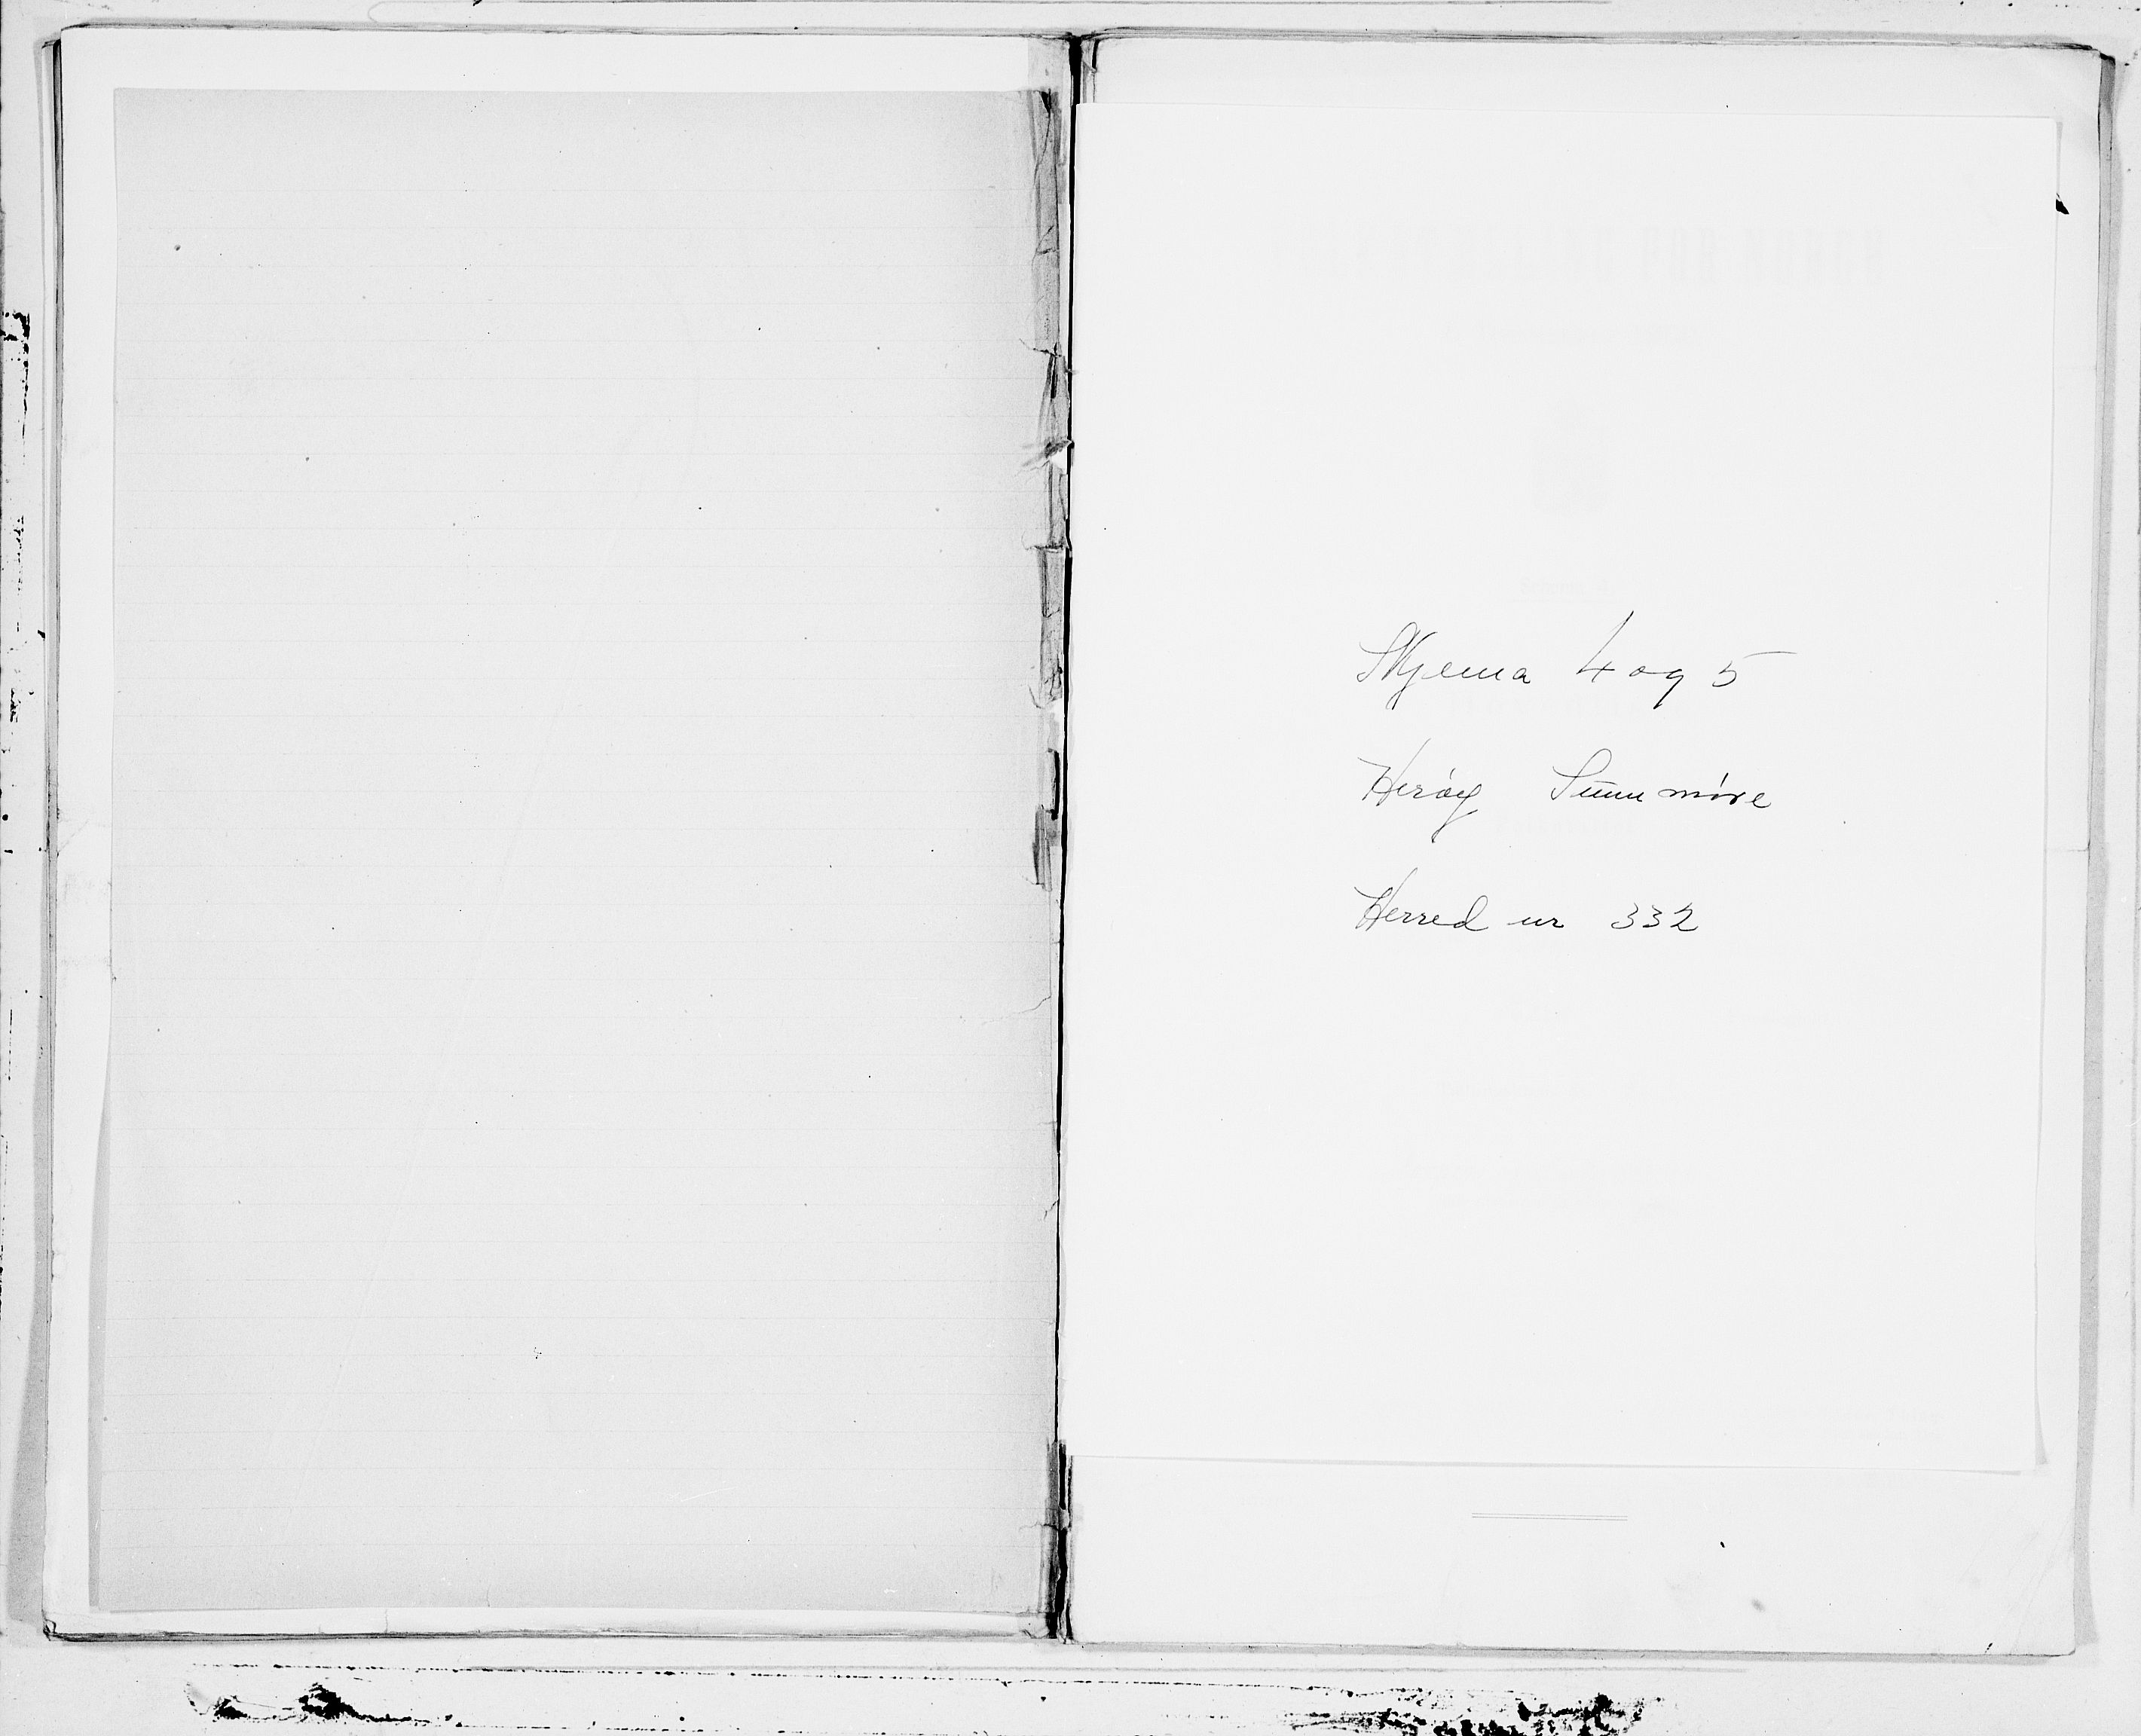 Skjema 4 og 5
Herøy Sunnmøre
Herred nr 332